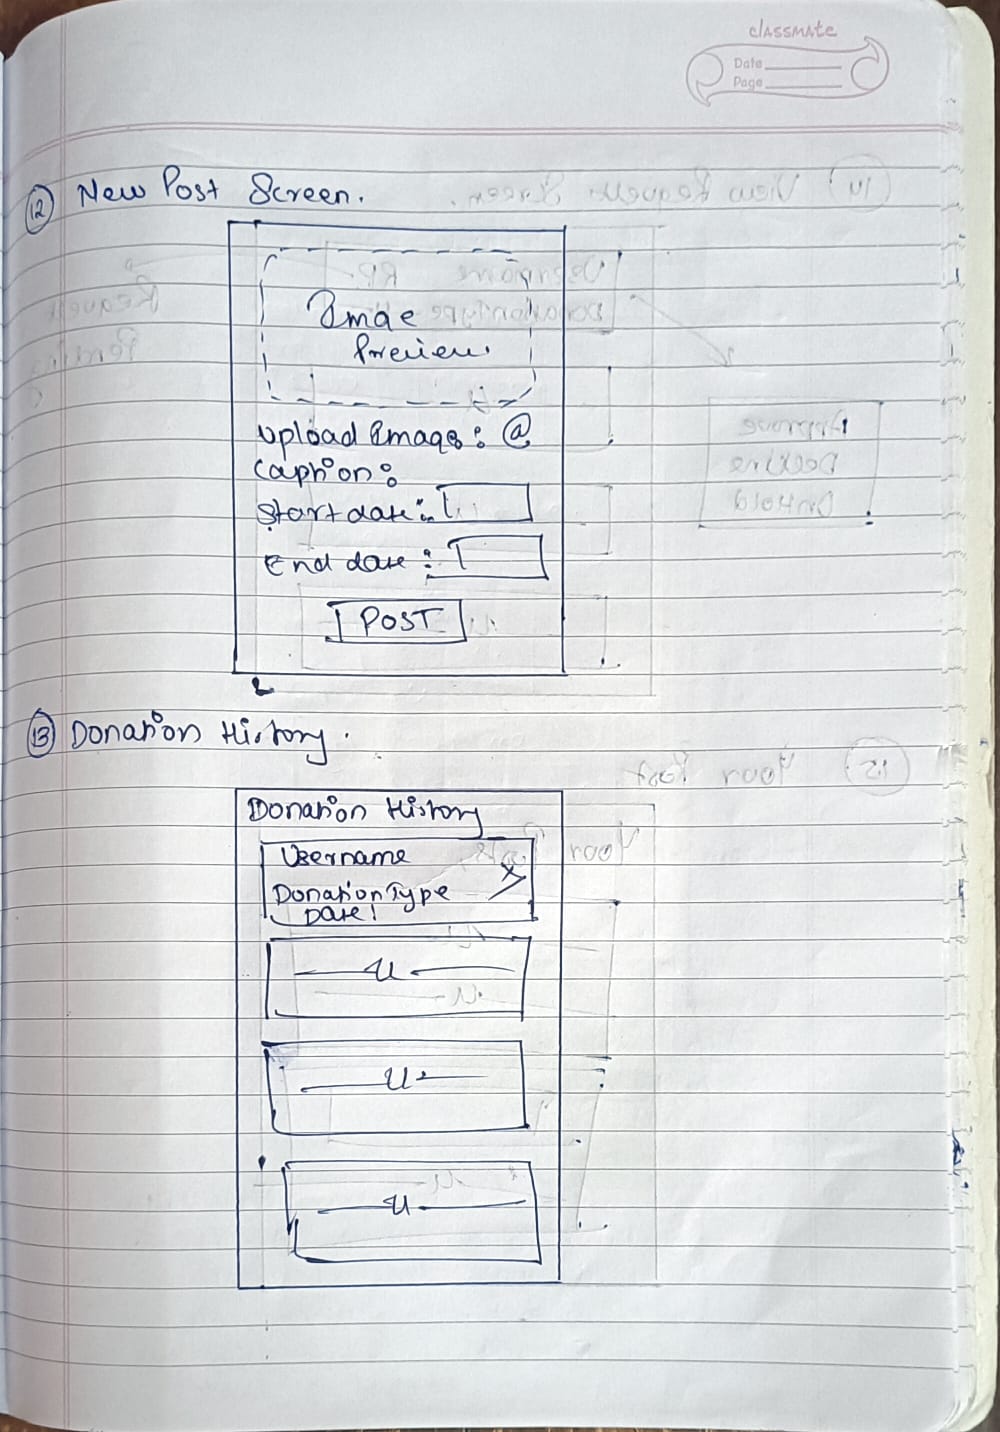 classmate
Date
Page
12 New Post Screen.
Imae
Preview
Upload Image: @
Caption:
Start date:
End date:
POST
13 Donation History.
Donation History
Username
Donation Type
Date:
-"-
-"-
-"-